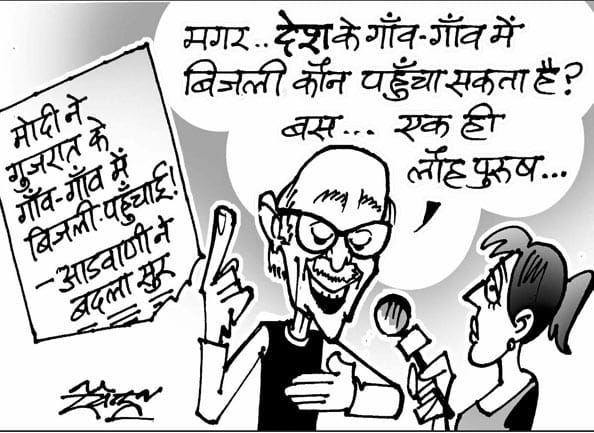 मोदी ने
गुजरात के
गाँव-गाँव में
बिजली पहुँचाई!
-आडवाणी ने
बदला सुर
मगर.. देश के गाँव-गाँव में
बिजली कौन पहुँचा सकता है?
बस... एक ही
लौह पुरुष...